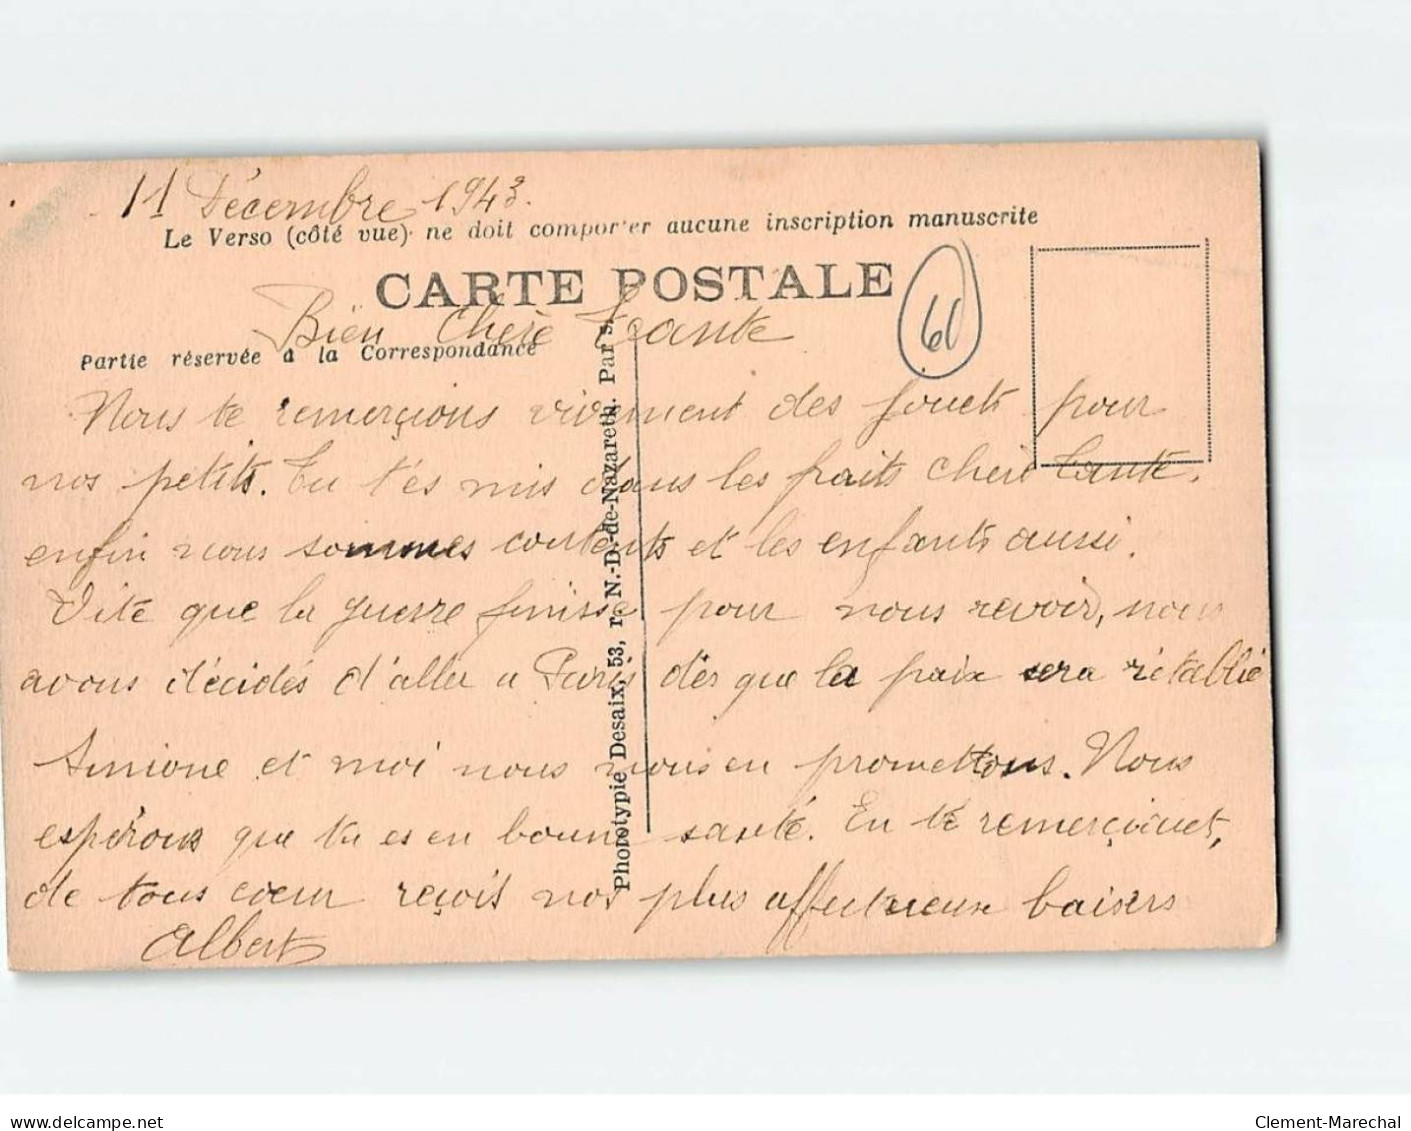 11 Décembre 1943.
Le Verso (côté vue) ne doit comporter aucune inscription manuscrite
CARTE POSTALE
60
Bien Chère Tante
Partie réservée à la Correspondance
Nous te remerçions vivement des jouets pour
nos petits. Tu t'es mis dans les frais chère tante.
enfin nous sommes contents et les enfants aussi.
Vite que la guerre finisse pour nous revoir, nous
avons décidés d'aller a Paris dès que la paix sera rétablie
Simone et moi nous nous en promettons. Nous
espérons que tu es en bonne santé. En te remerçient,
de tous coeur reçois nos plus affectueux baisers
Albert
Phototypie Desaix, 53, r. N.-D.-de-Nazareth. Paris
delcampe.net
Clement-Marechal